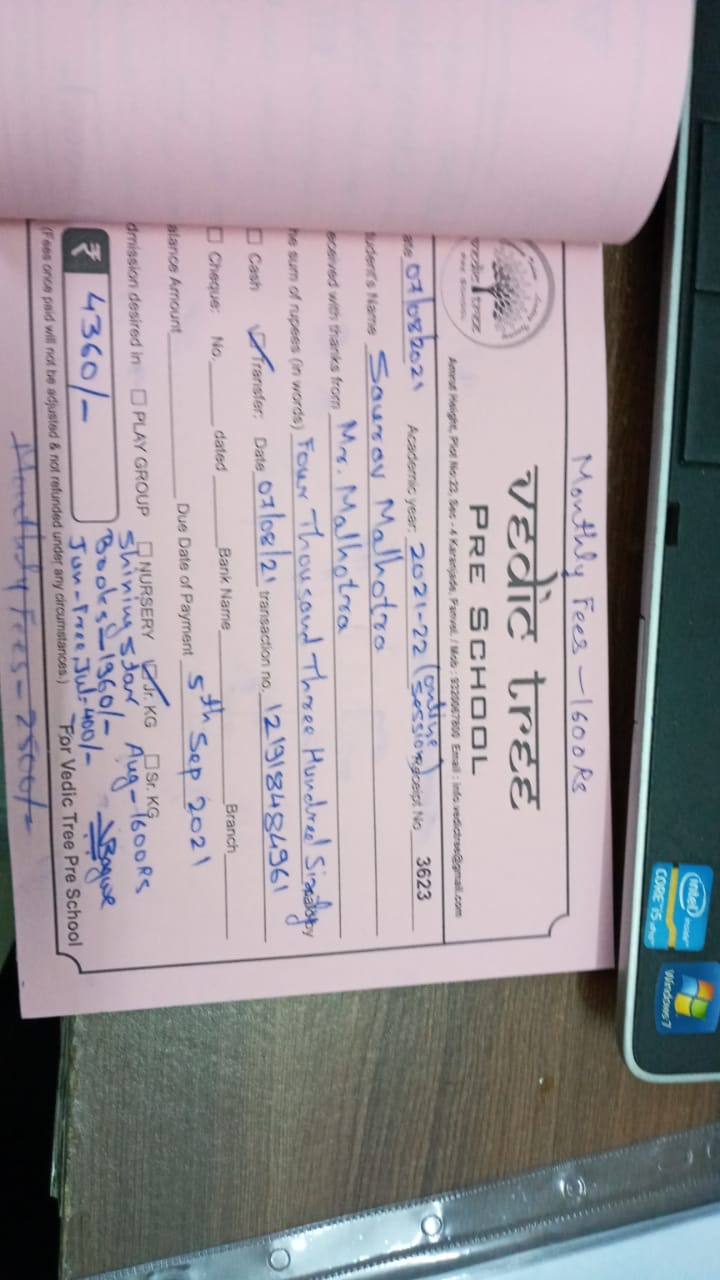 Monthly Fees - 1600 Rs
vedic tree
vedic tree
PRE SCHOOL
PRE SCHOOL
Amrut Height, Plot No:23, Sec - 4 Karanjade, Panvel. / Mob : 9320067800 Email : info.vedictree@gmail.com
ate 07/08/2021 Academic year: 2021-22 (online session) Receipt No. 3623
tudent's Name Sourav Malhotra
eceived with thanks from Mr. Malhotra
he sum of rupees (in words) Four Thousand Three Hundred Sixty by
☐ Cash ☑ Transfer: Date 07/08/21 transaction no. 121918484961
☐ Cheque: No. dated Bank Name Branch
alance Amount Due Date of Payment 5th Sep 2021
dmission desired in ☐ PLAY GROUP ☐ NURSERY ☑ Jr. KG ☐ Sr. KG
Shining Star Aug - 1600 Rs
₹ 4360/- Books - 1960/-
Jun - Free Jul - 400/-
For Vedic Tree Pre School
(Fees once paid will not be adjusted & not refunded under any circumstances.)
Monthly Fees - 2500/-
intel
CORE i5
Windows 7